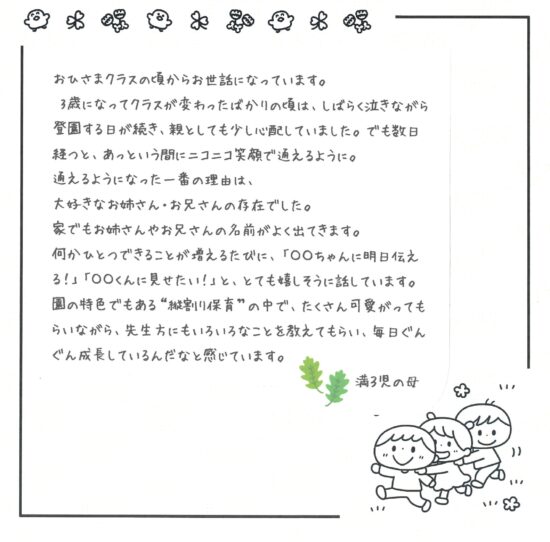 おひさまクラスの頃からお世話になっています。
3歳になってクラスが変わったばかりの頃は、しばらく泣きながら
登園する日が続き、親としても少し心配していました。でも数日
経つと、あっという間にニコニコ笑顔で通えるように。
通えるようになった一番の理由は、
大好きなお姉さん・お兄さんの存在でした。
家でもお姉さんやお兄さんの名前がよく出てきます。
何かひとつできることが増えるたびに、「〇〇ちゃんに明日伝え
る!」「〇〇くんに見せたい!」と、とても嬉しそうに話しています。
園の特色でもある“縦割り保育”の中で、たくさん可愛がっても
らいながら、先生方にもいろいろなことを教えてもらい、毎日ぐん
ぐん成長しているんだなと感じています。
満3児の母